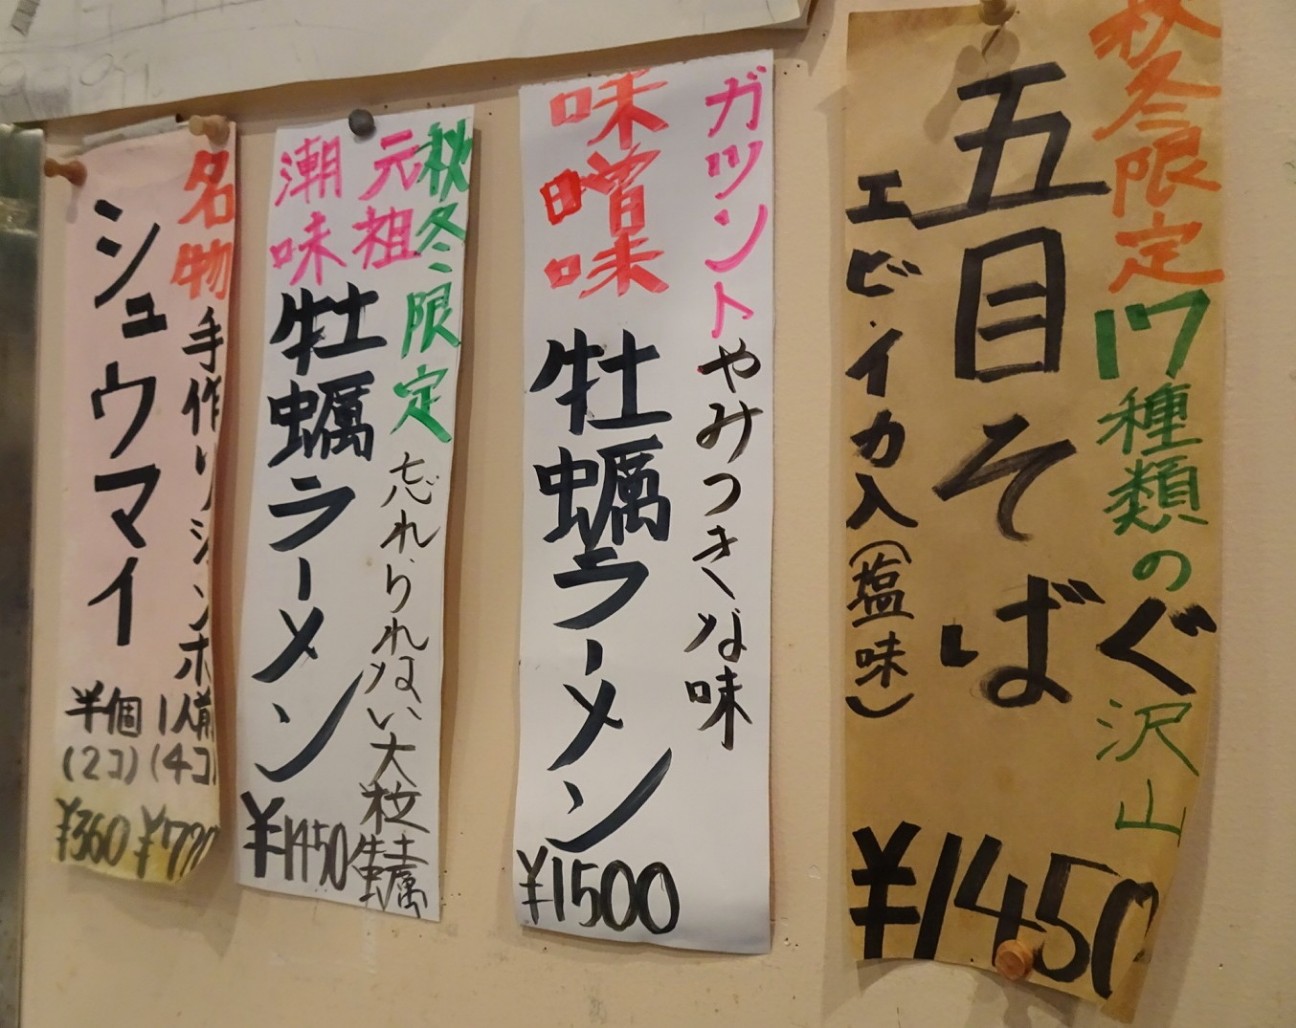 秋冬限定17種類のぐ沢山
五目そば
エビ・イカ入(塩味)
¥1450
ガツントやみつきな味
味噌味牡蠣ラーメン
¥1500
秋冬限定忘れられない大粒牡蠣
元祖
潮味
牡蠣ラーメン
¥1450
名物手作りジャンボ
シュウマイ
1人前(4コ)
¥720
半個(2コ)
¥360